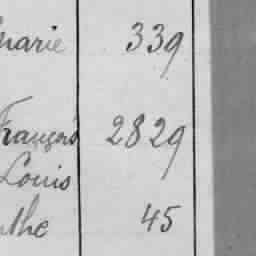 marie 339
François 2829
Louis
45